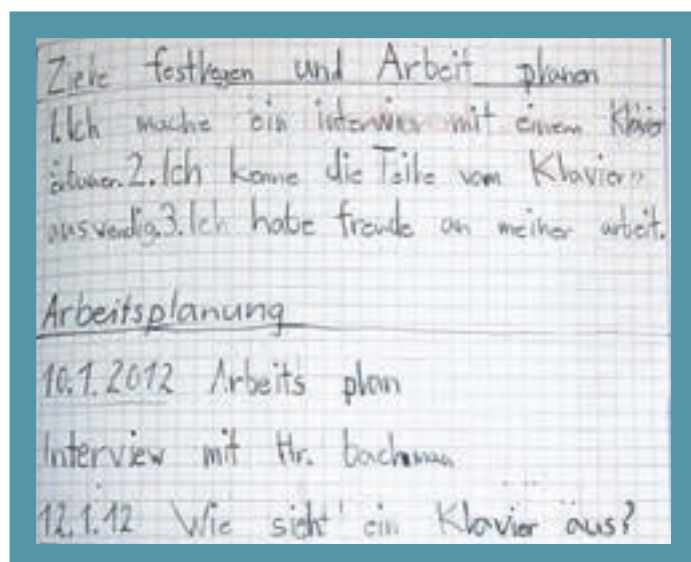 Ziele festlegen und Arbeit planen
1.Ich mache ein interview mit einem Klavier
2.Ich kenne die Teile vom Klavier
auswendig.3.Ich habe freude an meiner arbeit.
Arbeitsplanung
10.1.2012 Arbeits plan
Interview mit Hr. bachman
12.1.12 Wie sieht ein Klavier aus?